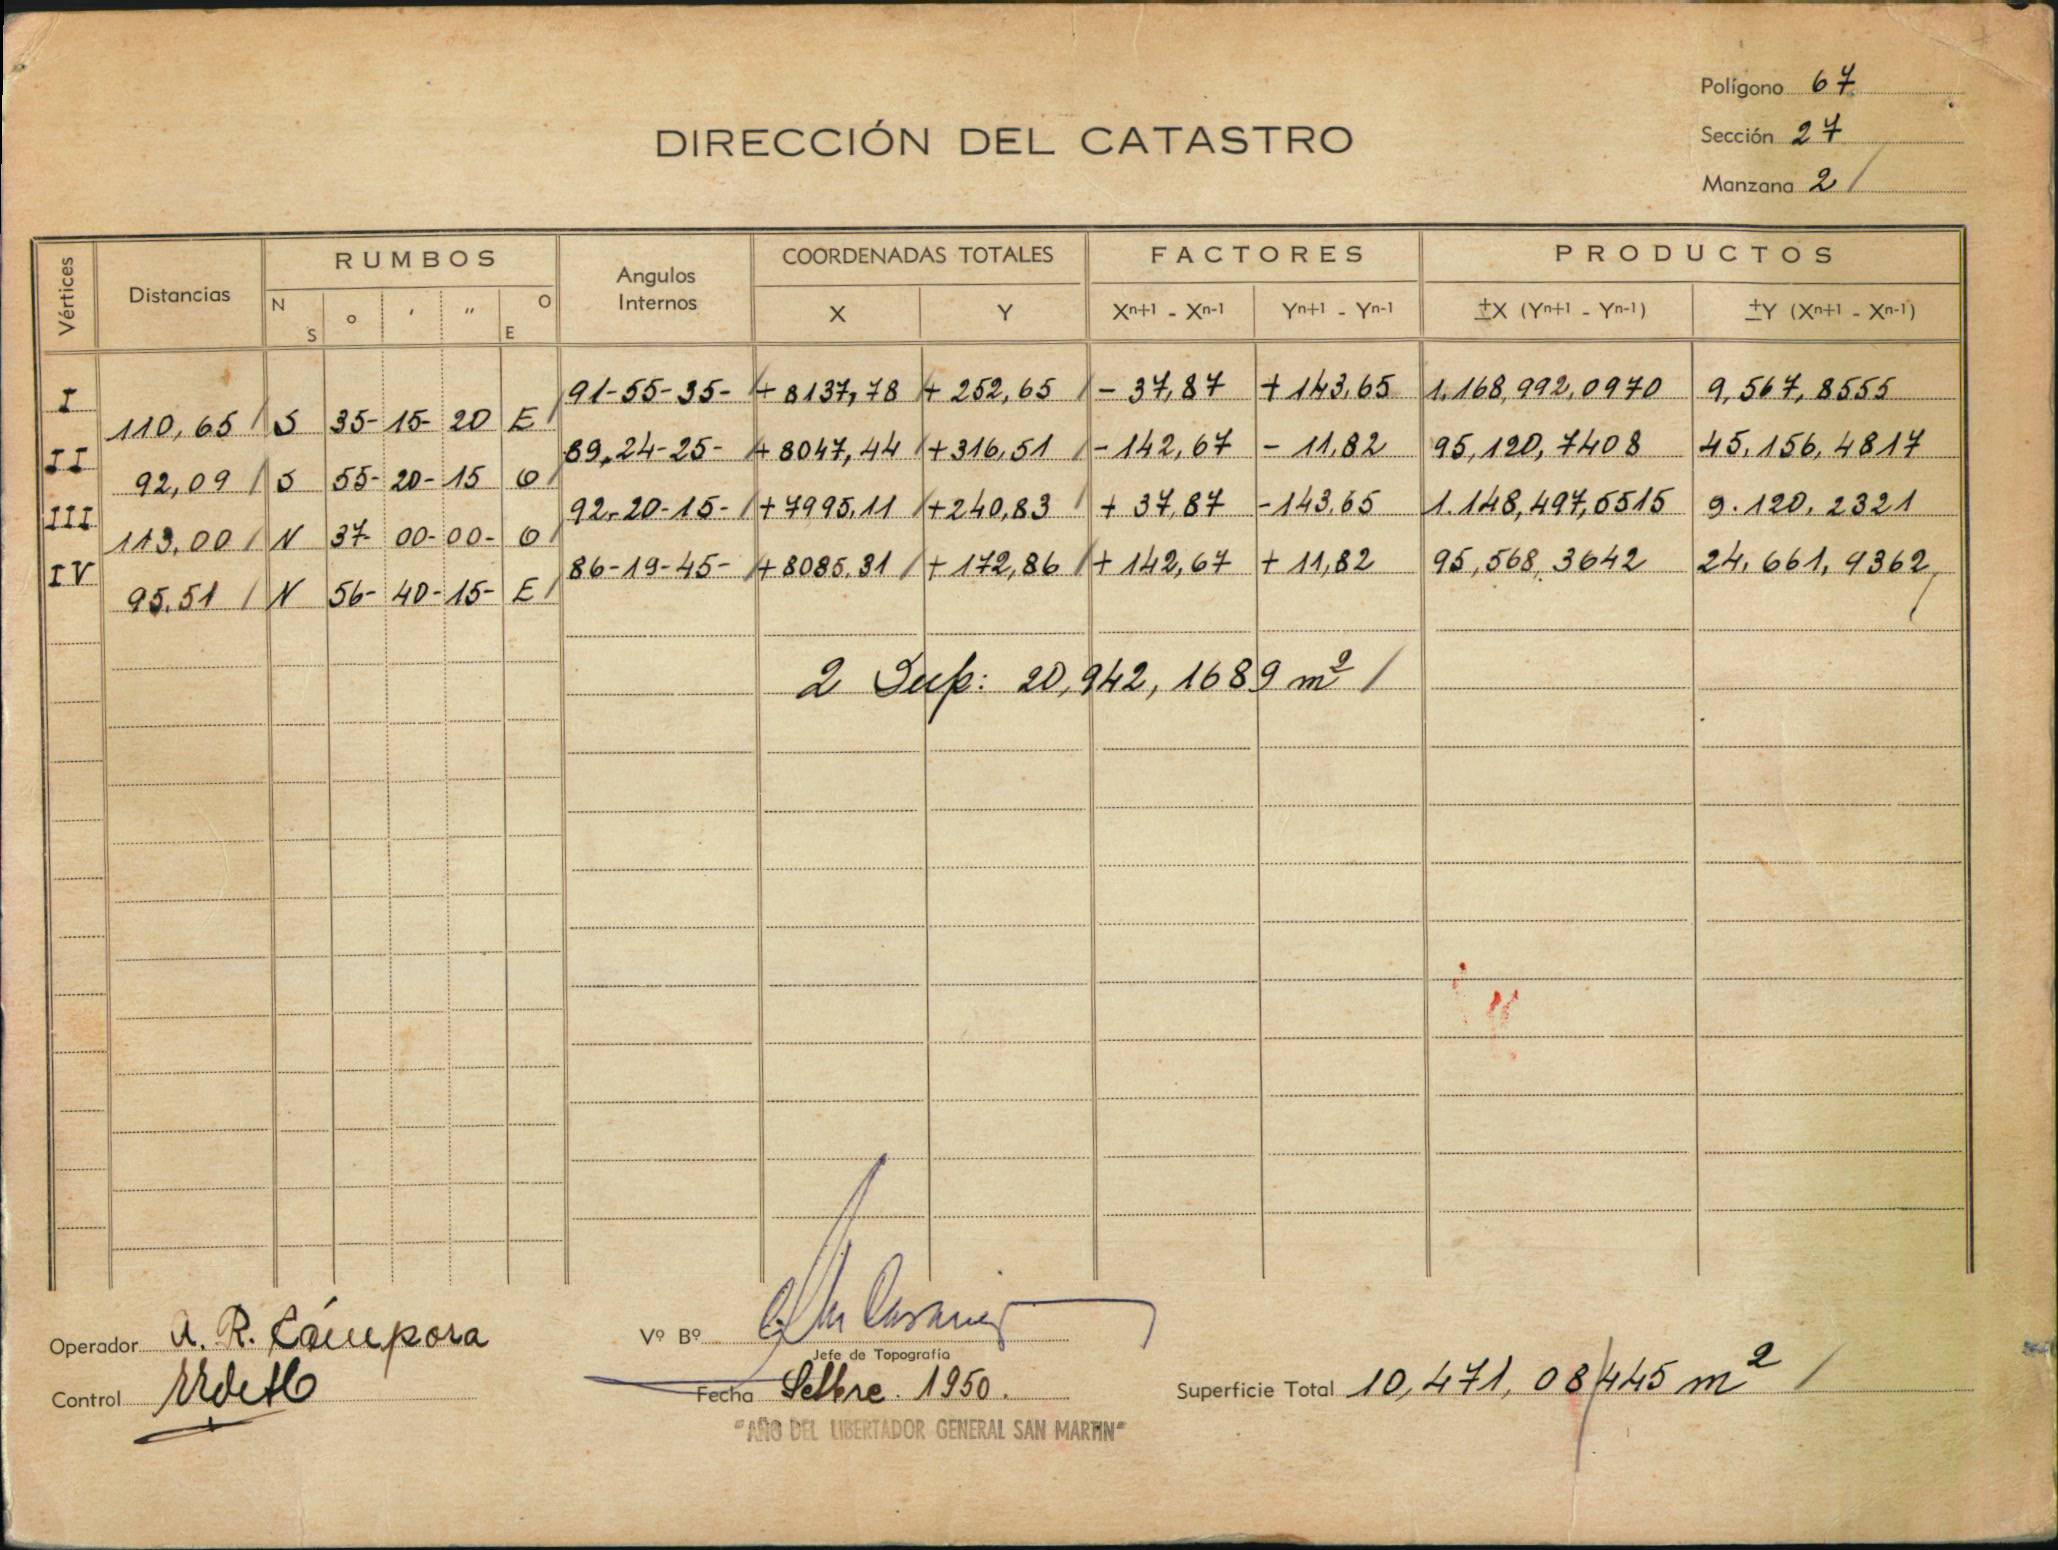 Polígono 67
DIRECCIÓN DEL CATASTRO
Sección 27
Manzana 2 /
Vértices Distancias RUMBOS Angulos Internos COORDENADAS TOTALES FACTORES PRODUCTOS
N S ° ' " O E X Y Xn+1 - Xn-1 Yn+1 - Yn-1 ±X (Yn+1 - Yn-1) ±Y (Xn+1 - Xn-1)
I 91-55-35- + 8137,78 + 252,65 - 37,87 + 143,65 1.168,992,0970 9,567,8555
110,65 S 35- 15- 20 E
II 89,24-25- + 8047,44 + 316,51 - 142,67 - 11,82 95,120,7408 45.156,4817
92,09 S 55- 20- 15 O
III 92-20-15- + 7995,11 + 240,83 + 37,87 - 143,65 1.148,497,5515 9.120,2321
113,00 N 37- 00- 00- O
IV 86-19-45- + 8085,31 + 172,86 + 142,67 + 11,82 95,568,3642 24,661,9362
95,51 N 56- 40- 15- E
2 Sup: 20,942,1689 m² /
Operador A. R. Cámpora
Vº Bº
Jefe de Topografía
Control
Fecha Setbre. 1950.
Superficie Total 10,471,08/445 m² /
"AÑO DEL LIBERTADOR GENERAL SAN MARTIN"